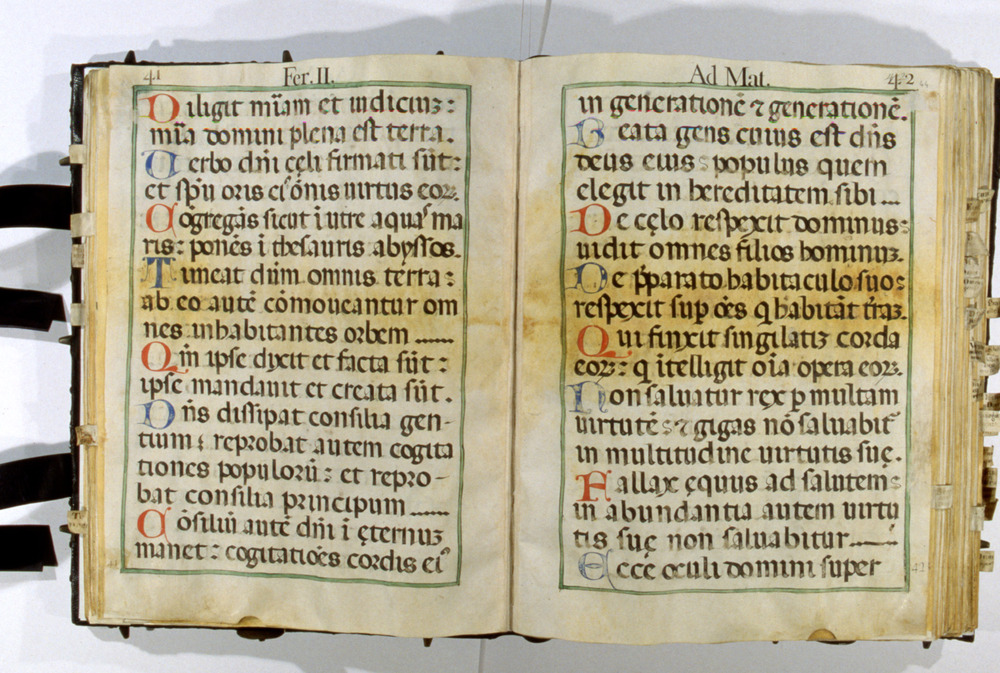 41
Fer. II.
Diligit mĩam et iudiciuz:
mĩa domini plena est terra.
Uerbo dñi cęli firmati sũt:
et spũ oris eiꝰ õnis uirtus eoꝝ.
Cõgregãs sicut ĩ utre aquas ma
ris: ponẽs ĩ thesauris abyssos.
Timeat dũm omnis terra:
ab eo autẽ cõmoueantur om
nes inhabitantes orbem
Qm̃ ipse dixit et facta sũt:
ipse mandauit et creata sũt.
Dñs dissipat consilia gen-
tium: reprobat autem cogita
tiones populorũ: et repro-
bat consilia principum
Cõsiliũ autẽ dñi ĩ ęternuz
manet: cogitatiões cordis eiꝰ
41
Ad Mat.
42
in generationẽ ⁊ generationẽ.
Beata gens cuius est dñs
deus eius: populus quem
elegit in hereditatem sibi
De cęlo respexit dominus:
uidit omnes filios hominuz.
De p̃parato habitaculo suo:
respexit sup oẽs q habitãt t̃raz.
Qui finxit singilatiz corda
eoꝝ: q ĩtelligit oĩa opera eoꝝ.
Non saluatur rex p multam
uirtutẽ: ⁊ gigas nõ saluabit̃
in multitudine uirtutis suę.
Fallax ęquus ad salutem:
in abundantia autem uirtu
tis suę non saluabitur
Ecce oculi domini super
42